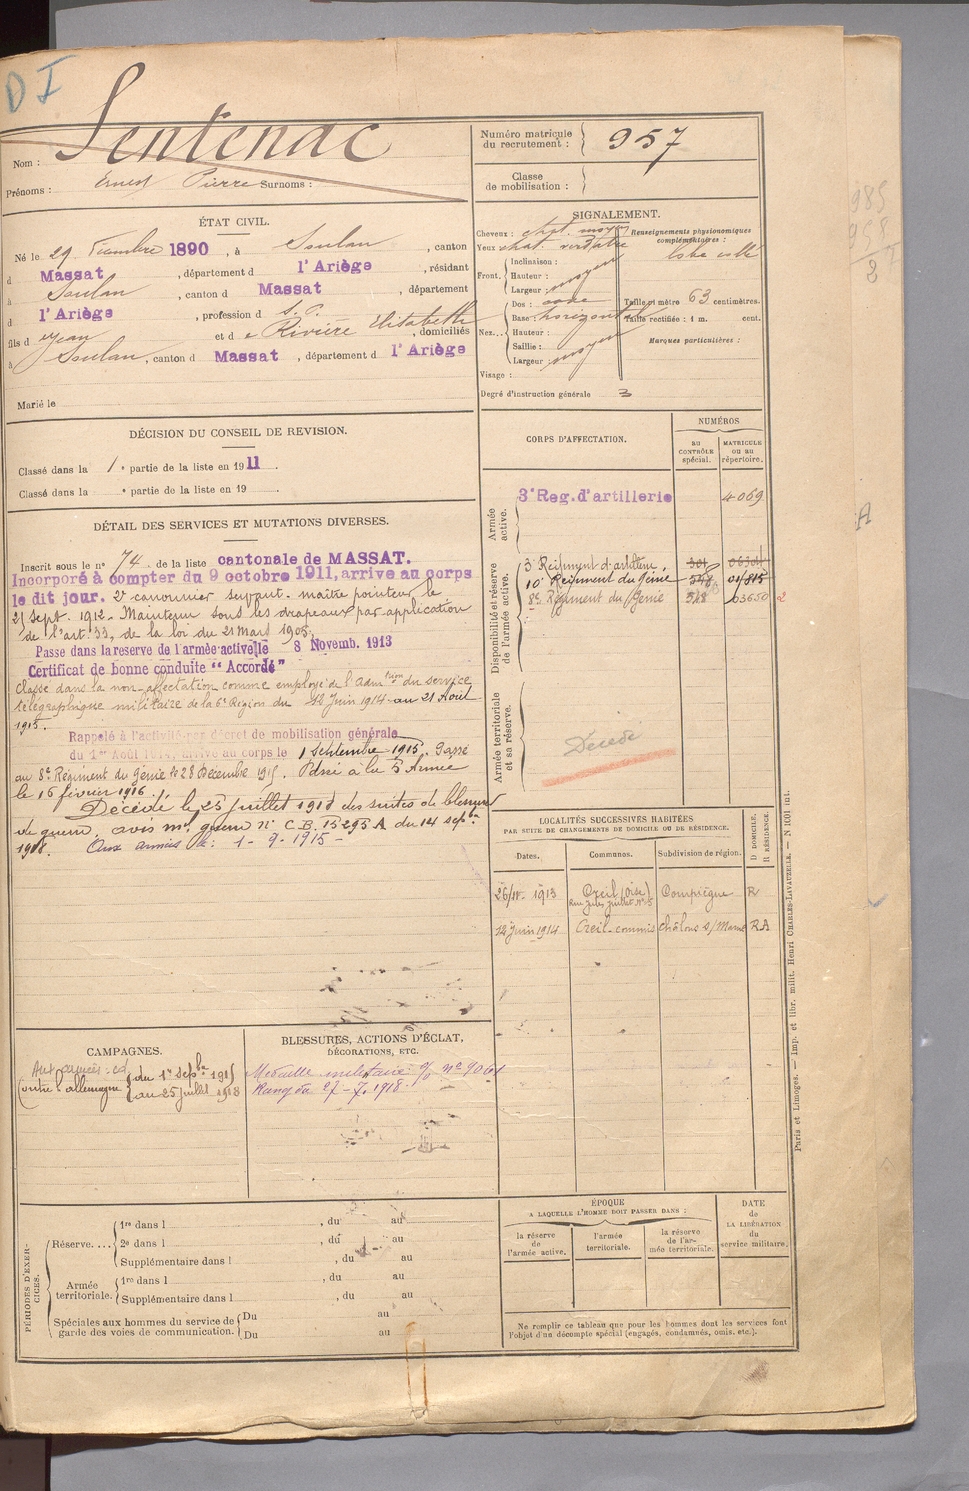 D I
Nom : Sentenac
Prénoms : Ernest Pierre Surnoms :
Numéro matricule du recrutement : 957
Classe de mobilisation :
ÉTAT CIVIL.
Né le 29 1890, à Soulan, canton
d Massat, département d l'Ariège, résidant
à Soulan, canton d Massat, département
d l'Ariège, profession d s. P.
fils d Jean et d e Rivière Elisabeth, domiciliés
à Soulan, canton d Massat, département d l'Ariège
Marié le
SIGNALEMENT.
Cheveux : chat. moyen
Yeux chat. verdâtre
Front. Inclinaison :
Hauteur : moyen
Largeur :
Nez... Dos : cave
Base : horizontal
Hauteur :
Saillie : moyen
Largeur :
Visage :
Renseignements physionomiques complémentaires :
Taille 1 mètre 63 centimètres.
Taille rectifiée : 1 m. cent.
Marques particulières :
Degré d'instruction générale 3
DÉCISION DU CONSEIL DE REVISION.
Classé dans la 1e partie de la liste en 1911.
Classé dans la e partie de la liste en 19
DÉTAIL DES SERVICES ET MUTATIONS DIVERSES.
Inscrit sous le n° 74 de la liste cantonale de MASSAT.
Incorporé à compter du 9 octobre 1911, arrivé au corps
le dit jour. 2e canonnier servant. maître pointeur le
21 sept. 1912. Maintenu sous les drapeaux par application
de l'art. 33, de la loi du 21 Mars 1905.
Passé dans la reserve de l'armée active le 8 Novemb. 1913
Certificat de bonne conduite "Accordé"
Classé dans la non-affectation comme employé de l'admtion du service
télégraphique militaire de la 6e Région du 12 Juin 1914 au 21 Août
1915.
Rappelé à l'activité par décret de mobilisation générale
du 1er Août 1914, arrivé au corps le 1 Septembre 1915. Passé
au 8e Régiment du génie le 28 Décembre 1915. Passé à la 5 Armée
le 16 février 1916.
Décédé le 25 juillet 1918 des suites de blessures
de guerre. avis m. guerre n° C.B. 15293 A du 14 septbre
1918. Aux armées le : 1 - 9 - 1915 -
CORPS D'AFFECTATION.
NUMÉROS
au CONTRÔLE spécial.
MATRICULE ou au répertoire.
Armée active.
3e Reg. d'artillerie 4069
Disponibilité et réserve de l'armée active.
3e Régiment d'artillerie.
10e Régiment du génie 01815
8e Régiment du Génie 548 03650 2
Armée territoriale et sa réserve.
Décédé
LOCALITÉS SUCCESSIVES HABITÉES
PAR SUITE DE CHANGEMENTS DE DOMICILE OU DE RÉSIDENCE.
Dates. Communes. Subdivision de région. D DOMICILE. R RÉSIDENCE.
1913 Creil (Oise) Compiègne R
Rue Jules Juillet n° 5
12 Juin 1914 Creil - commis Châlons s/Marne RA
CAMPAGNES.
Contre l'allemagne
du 1er Sepbre 1915
au 25 juillet 1918
BLESSURES, ACTIONS D'ÉCLAT,
DÉCORATIONS, ETC.
Médaille militaire : o/o n° 9061
Rang du 27 - 7. 1918
PÉRIODES D'EXERCICES.
Réserve.... 1re dans l , du au
2e dans l , du au
Supplémentaire dans l , du au
Armée territoriale. 1re dans l , du au
Supplémentaire dans l , du au
Spéciales aux hommes du service de garde des voies de communication. Du au
Du au
ÉPOQUE
A LAQUELLE L'HOMME DOIT PASSER DANS :
la réserve de l'armée active.
l'armée territoriale.
la réserve de l'armée territoriale.
DATE de LA LIBÉRATION du service militaire.
Ne remplir ce tableau que pour les hommes dont les services font
l'objet d'un décompte spécial (engagés, condamnés, omis. etc.).
Paris et Limoges. — Imp. et libr. milit. Henri CHARLES-LAVAUZELLE. — N 1001 int.
985
A